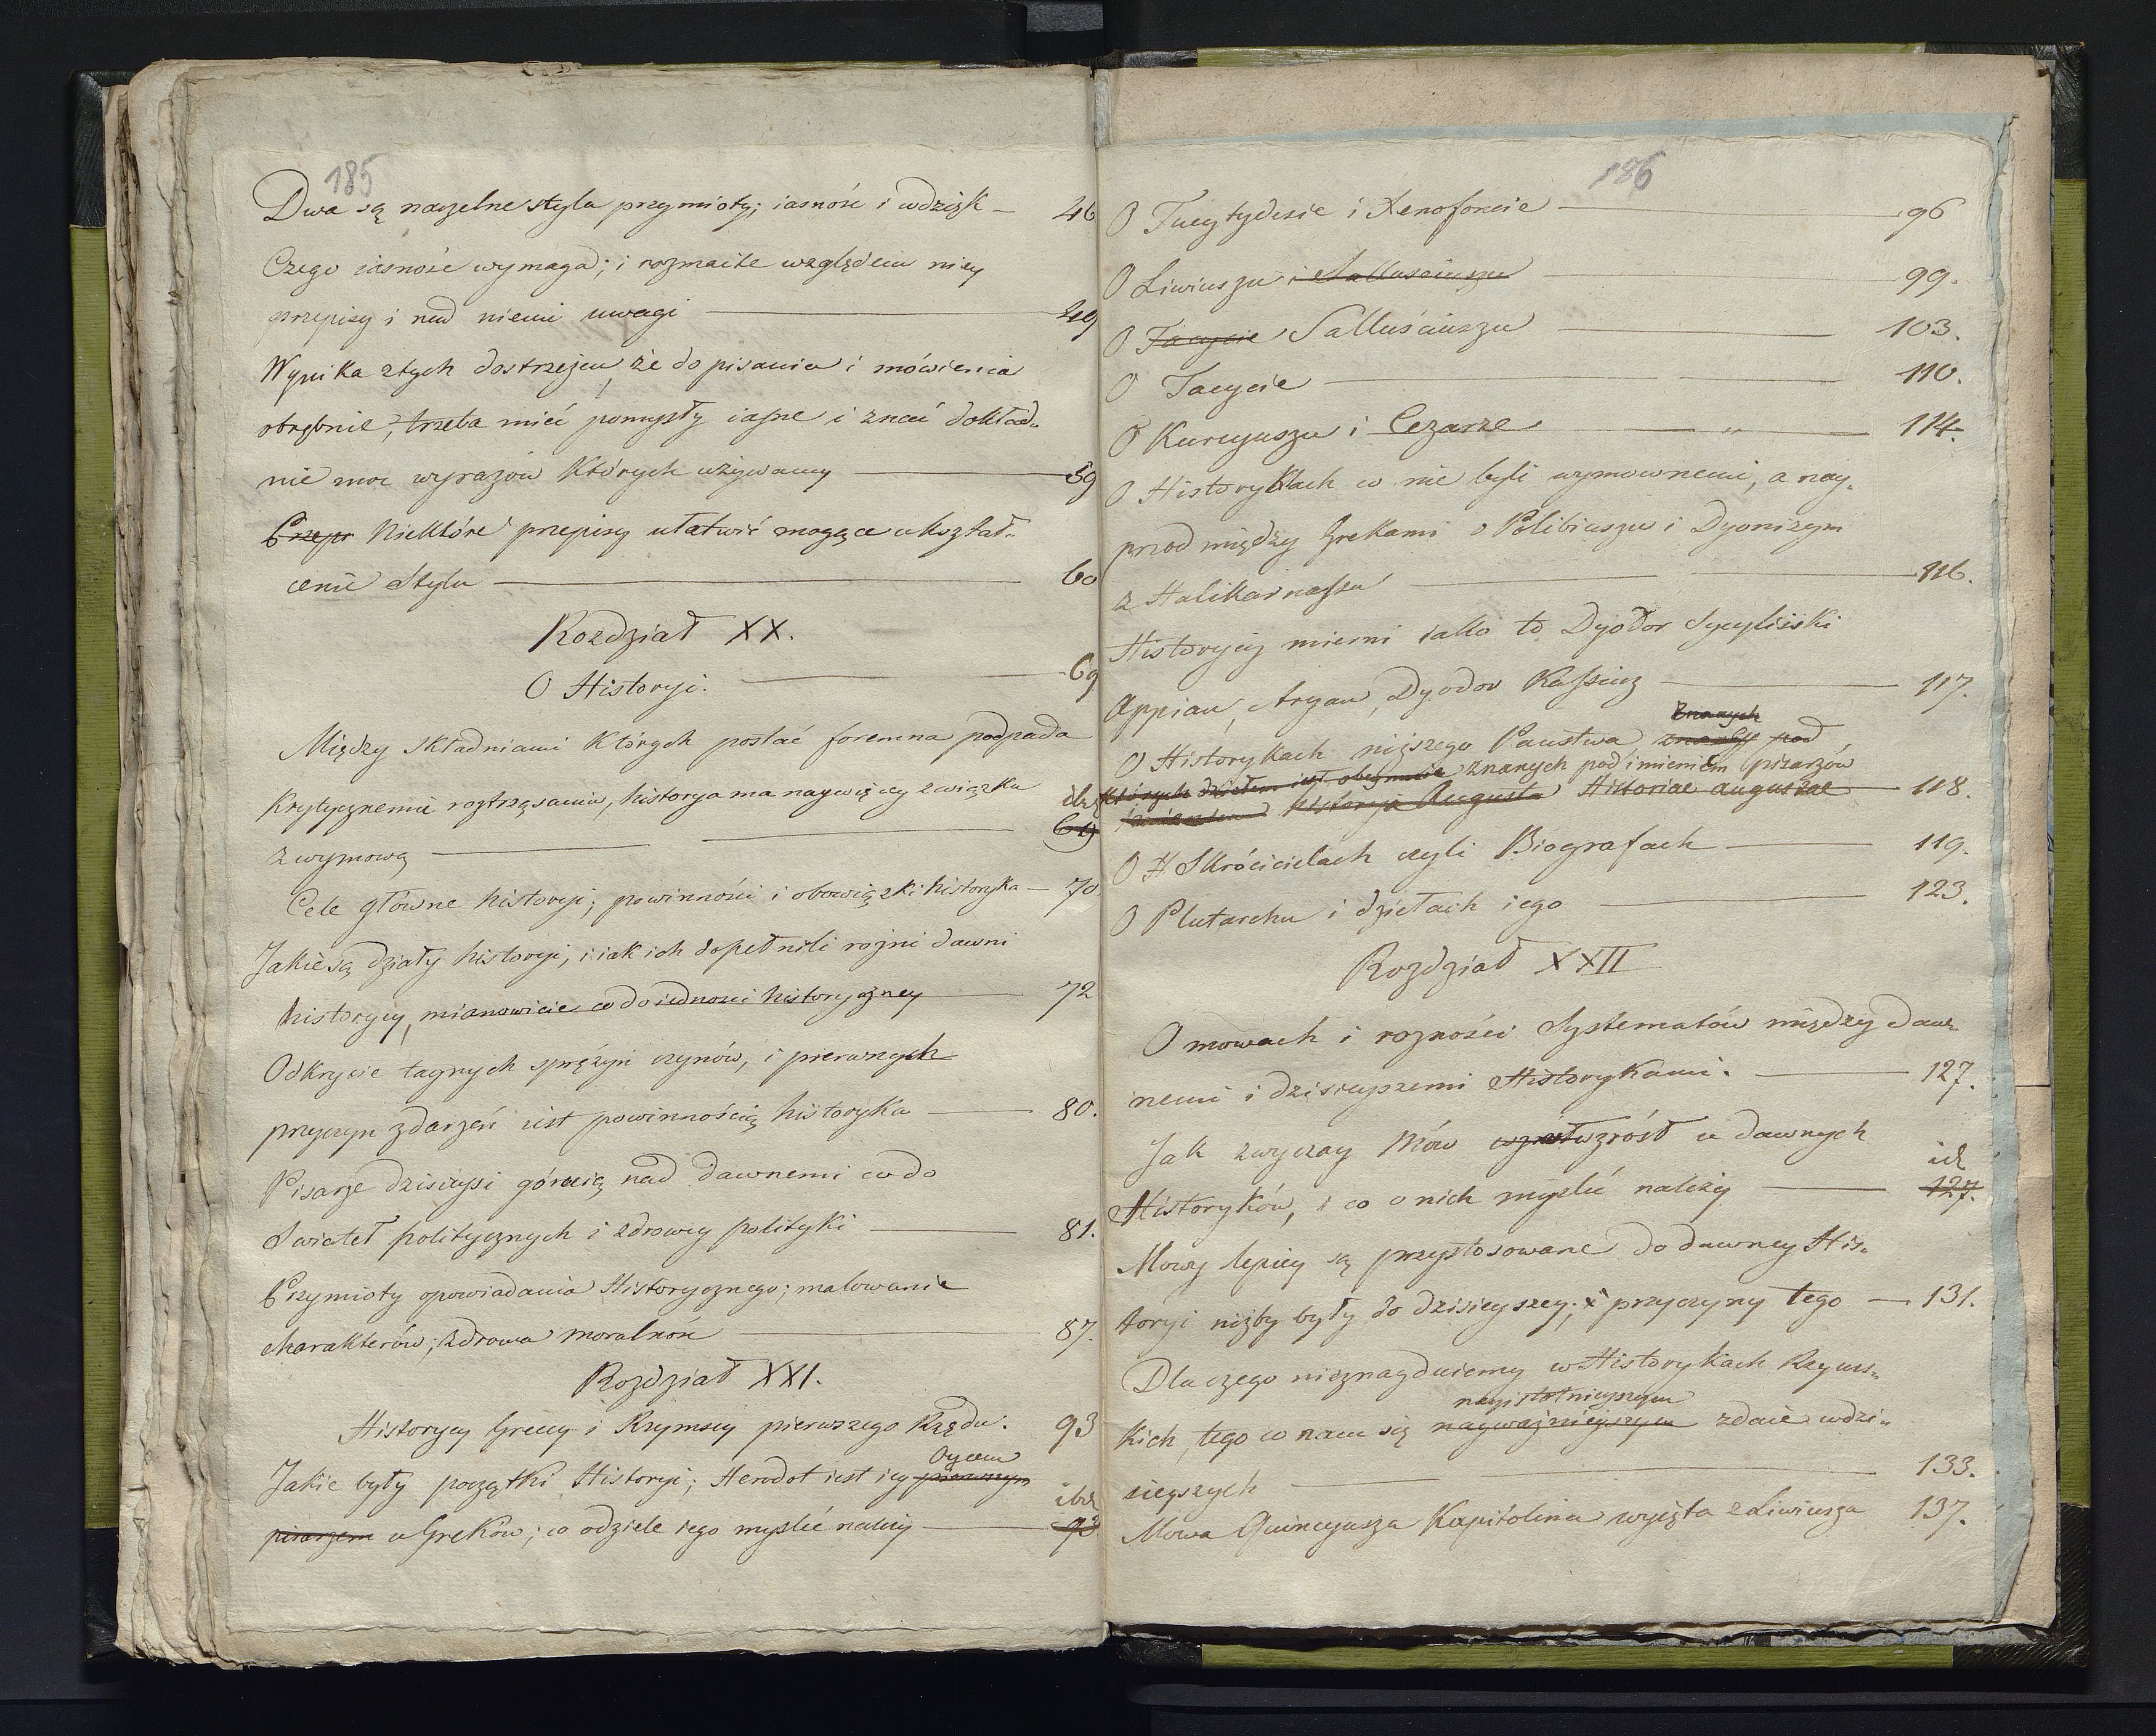 185
Dwa są naczelne stylu przymioty; iasność i wdzięk — 46
Czego iasność wymaga; i rozmaite względem niey
przepisy i nad niemi uwagi — 49
Wynika ztych dostrzeżeń, że do pisania i mówienia
ozdobnie, trzeba mieć pomysły iasne i znać dokład-
nie moc wyrazów których używamy — 59
Niektóre przepisy ułatwić mogące ukształ-
cenie Stylu — 60
Rozdział XX.
O Historyi. — 69
Między składniami których postać foremna podpada
krytycznemu roztrząsaniu, historya ma naywięcy związku
z wymową — ibd 69
Cele główne historyi; powinności i obowiązki historyka — 70
Jakie są działy historyi, i iak ich dopełnili rożni dawni
historycy, mianowicie co do iedności historyczney — 72
Odkrycie taynych sprężyn czynów, i pierwnych
przyczyn zdarzeń iest powinnością historyka — 80.
Pisarze dzisieysi góruią nad dawnemi co do
Swiateł politycznych i zdrowey polityki — 81.
Przymioty opowiadania Historycznego; malowanie
charakterów; zdrowa moralność — 87.
Rozdział XXI.
Historycy Greccy i Rzymscy pierwszego Rzędu. 93
Oycem
Jakie były początki Historyi; Herodot iest iey pierwszym
pisarzem u Greków; co o dziele iego myslić należy — ibd 93
186
O Tucytydesie i Xenofoncie — 96
O Liwiuszu i Sallusciuszu — 99.
O Tacycie Sallusciuszu — 103.
O Tacycie — 110.
O Kurcyuszu i Cezarze — " — 114.
O Historykach co nie byli wymownemi, a nay-
przod między Grekami o Polibiuszu i Dyonizym
z Halikarnassu — 116.
Historycy mierni iako to Dyodor Sycyliiski
Appian, Aryan, Dyodor Kassiusz — 117.
Znanych
O Historykach niższego Państwa znanych pod
których dziełem iest obeymuie znanych pod imieniem pisarzów
historyi Augusta Historiae augustae — 118.
O H Skrócicielach czyli Biografach — 119.
O Plutarchu i dziełach iego — 123.
Rozdział XXII
O mowach i rozności Systematów między daw-
nemi i dzisieyszemi Historykami. — 127.
Jak zwyczay Mów wzrósł u dawnych
Historyków, i co o nich myslić należy — id 127.
Mowy lepiey są przystosowane do dawney His-
toryi niżby były do dzisieyszey; i przyczyny tego — 131.
Dla czego nieznayduiemy w Historykach Rzyms-
nayistotnieyszym
kich, tego co nam się nayważnieyszym zdaie w dzi-
sieyszych — 133.
Mowa Quincyusza Kapitolina wyięta z Liwiusza 137.